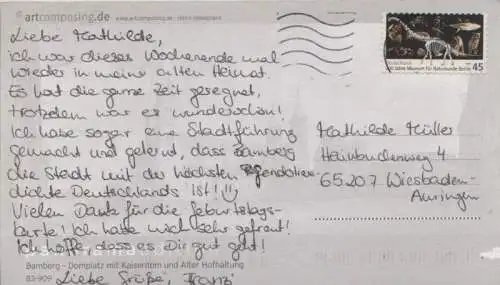 artcomposing.de www.artcomposing.de
Liebe Mathilde,
ich war dieses Wochenende mal
wieder in meiner alten Heimat.
Es hat die ganze Zeit geregnet,
trotzdem war es wunderschön!
Ich habe sogar eine Stadtführung
gemacht und gelernt, dass Bamberg
die Stadt mit der höchsten
dichte Deutschlands ist!
Vielen Dank für die Geburtstags-
karte! Ich hatte mich sehr gefreut!
Ich hoffe, dass es Dir gut geht!
Bamberg – Domplatz mit Kaiserdom und Alter Hofhaltung
83-909 Liebe Grüße, Franzi
Deutschland
200 Jahre Museum für Naturkunde Berlin 45
Mathilde Müller
Hainbuchenweg 4
65207 Wiesbaden-
Auringen